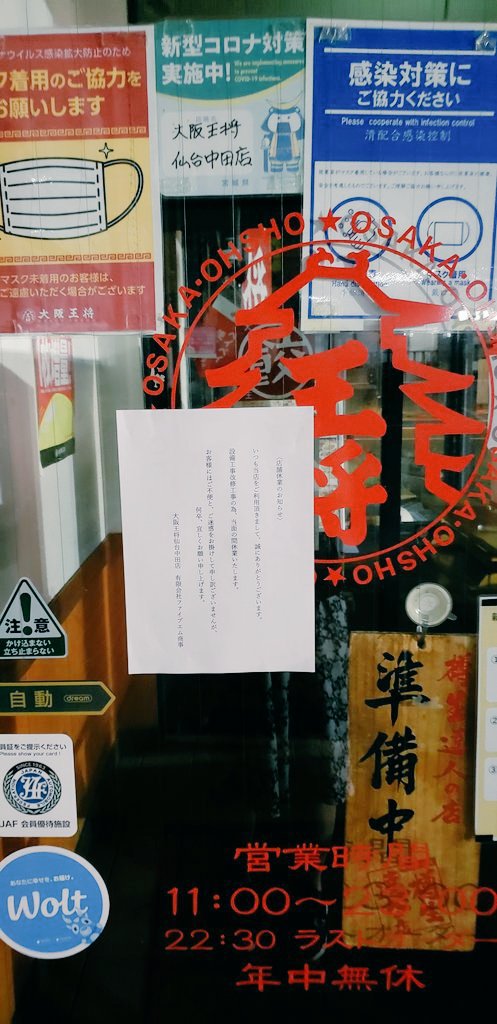 ウイルス感染拡大防止のため
ク着用のご協力を
お願いします
マスク未着用のお客様は、
ご遠慮いただく場合がございます
大阪王将
新型コロナ対策
実施中!
We are implementing measures
to prevent
COVID-19 infections.
大阪王将
仙台中田店
宮城県
感染対策に
ご協力ください
Please cooperate with infection control
清配合感染控制
マスク着用
Wearing a mask
OSAKA·OHSHO★OSAKA·OHSHO★
王将
〈店舗休業のお知らせ〉
いつも当店をご利用頂きまして、誠にありがとうございます。
設備工事改修工事の為、当面の間休業いたします。
お客様にはご不便と、ご迷惑をお掛けして申し訳ございませんが、
何卒、宜しくお願い申し上げます。
大阪王将仙台中田店 有限会社ファイブエム商事
注意
かけ込まない
立ち止まらない
自動
dream
員証をご提示ください
Please show your card!
SINCE 1963
JAF 会員優待施設
あなたに幸せを、お届け。
Wolt
準備中
営業時間
11:00〜
22:30 ラストオーダー
年中無休